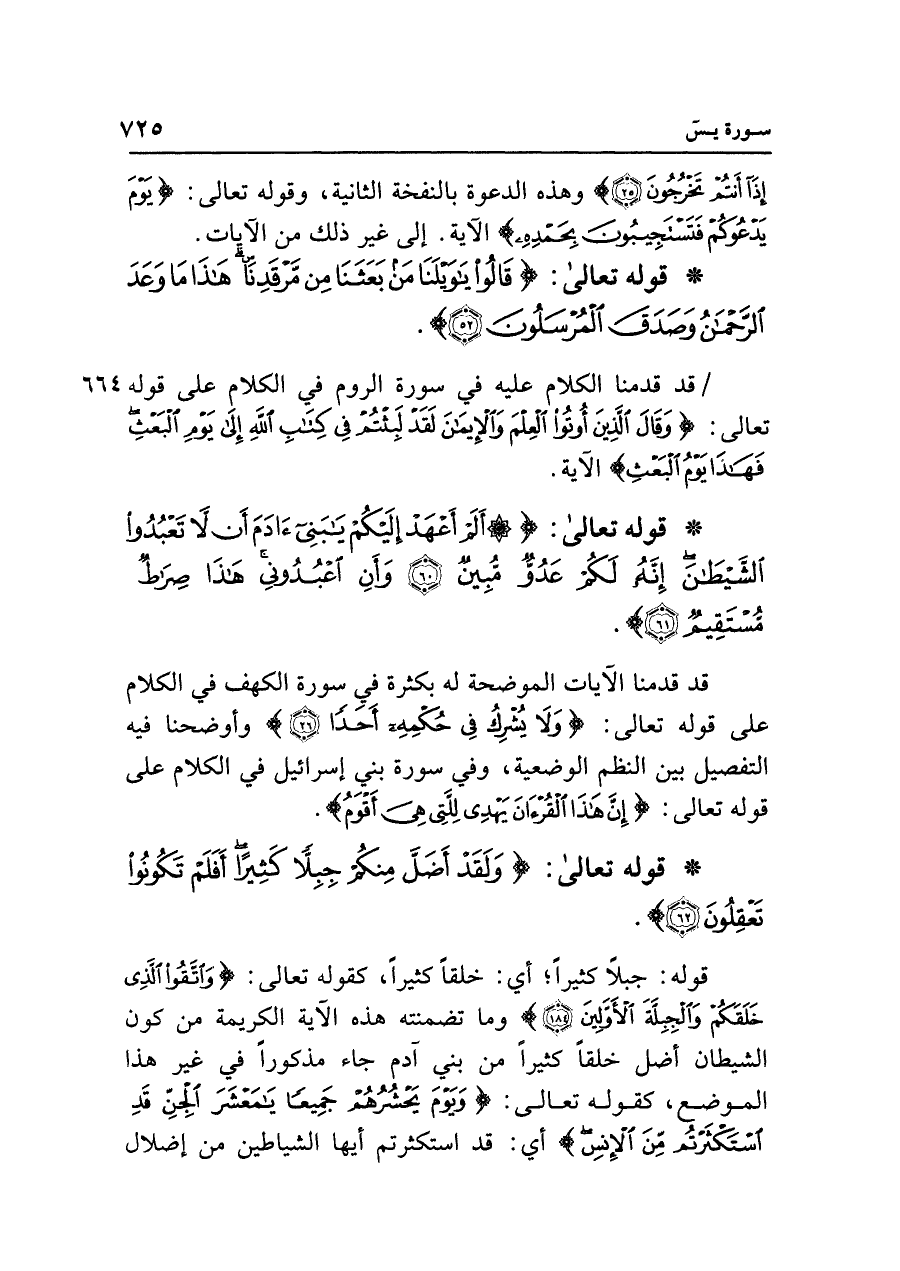 سورة يسَ ٧٢٥
إِذَآ أَنتُمْ تَخْرُجُونَ ﴿٢٥﴾﴾ وهذه الدعوة بالنفخة الثانية، وقوله تعالى: ﴿يَوْمَ
يَدْعُوكُمْ فَتَسْتَجِيبُونَ بِحَمْدِهِۦ﴾ الآية. إلى غير ذلك من الآيات.
* قوله تعالىٰ: ﴿قَالُوا۟ يَٰوَيْلَنَا مَنۢ بَعَثَنَا مِن مَّرْقَدِنَاۗ هَٰذَا مَا وَعَدَ
ٱلرَّحْمَٰنُ وَصَدَقَ ٱلْمُرْسَلُونَ ﴿٥٢﴾﴾.
/ قد قدمنا الكلام عليه في سورة الروم في الكلام على قوله ٦٦٤
تعالى: ﴿وَقَالَ ٱلَّذِينَ أُوتُوا۟ ٱلْعِلْمَ وَٱلْإِيمَٰنَ لَقَدْ لَبِثْتُمْ فِى كِتَٰبِ ٱللَّهِ إِلَىٰ يَوْمِ ٱلْبَعْثِۖ
فَهَٰذَا يَوْمُ ٱلْبَعْثِ﴾ الآية.
* قوله تعالىٰ: ﴿۞ أَلَمْ أَعْهَدْ إِلَيْكُمْ يَٰبَنِىٓ ءَادَمَ أَن لَّا تَعْبُدُوا۟
ٱلشَّيْطَٰنَۖ إِنَّهُۥ لَكُمْ عَدُوٌّ مُّبِينٌ ﴿٦٠﴾ وَأَنِ ٱعْبُدُونِىۚ هَٰذَا صِرَٰطٌ
مُّسْتَقِيمٌ ﴿٦١﴾﴾.
قد قدمنا الآيات الموضحة له بكثرة في سورة الكهف في الكلام
على قوله تعالى: ﴿وَلَا يُشْرِكُ فِى حُكْمِهِۦٓ أَحَدًا ﴿٢٦﴾﴾ وأوضحنا فيه
التفصيل بين النظم الوضعية، وفي سورة بني إسرائيل في الكلام على
قوله تعالى: ﴿إِنَّ هَٰذَا ٱلْقُرْءَانَ يَهْدِى لِلَّتِى هِىَ أَقْوَمُ﴾.
* قوله تعالىٰ: ﴿وَلَقَدْ أَضَلَّ مِنكُمْ جِبِلًّا كَثِيرًاۖ أَفَلَمْ تَكُونُوا۟
تَعْقِلُونَ ﴿٦٢﴾﴾.
قوله: جبلاً كثيراً؛ أي: خلقاً كثيراً، كقوله تعالى: ﴿وَٱتَّقُوا۟ ٱلَّذِى
خَلَقَكُمْ وَٱلْجِبِلَّةَ ٱلْأَوَّلِينَ ﴿١٨٤﴾﴾ وما تضمنته هذه الآية الكريمة من كون
الشيطان أضل خلقاً كثيراً من بني آدم جاء مذكوراً في غير هذا
الموضع، كقوله تعالى: ﴿وَيَوْمَ يَحْشُرُهُمْ جَمِيعًا يَٰمَعْشَرَ ٱلْجِنِّ قَدِ
ٱسْتَكْثَرْتُم مِّنَ ٱلْإِنسِۖ﴾ أي: قد استكثرتم أيها الشياطين من إضلال